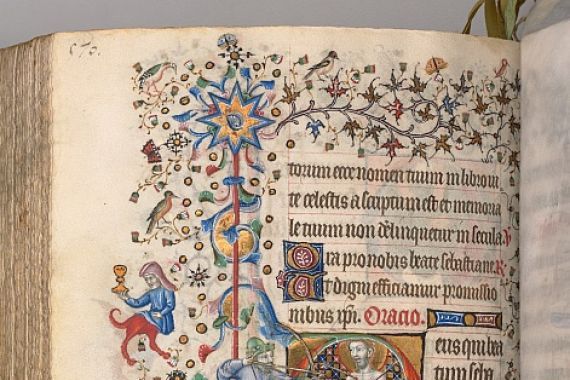 570.
torum ecce nomen tuum in libro ui
te celestis asscriptum est et memoria
le tuum non delinquetur in secula V
Ora pro nobis beate sebastiane. R
Ut digni efficiamur promissio
nibus xpi. Oracio.
eus qui bea
tum seba